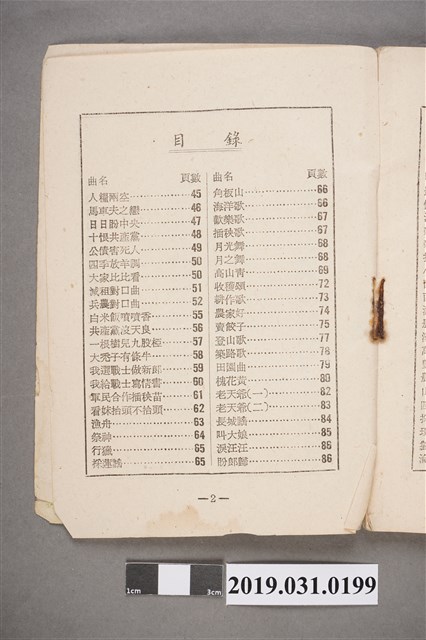 目錄
曲名 頁數
人糧兩空 45
馬車夫之戀 46
日日盼中央 47
十恨共產黨 48
公債害死人 49
四季放羊調 50
大家比比看 50
減租對口曲 51
兵農對口曲 52
白米飯噴噴香 55
共產黨沒天良 56
一根樹兒九股椏 57
大禿子有條牛 58
我選戰士做新郎 59
我給戰士寫情書 60
軍民合作插秧苗 61
看妹抬頭不抬頭 62
漁舟 63
祭神 64
行獵 65
採蓮謠 65
曲名 頁數
角板山 66
海洋歌 66
歡樂歌 67
插秧歌 67
月光舞 68
月之舞 68
高山青 69
收穫頌 72
耕作歌 73
農家好 74
賣餃子 75
登山歌 77
築路歌 78
田園曲 79
槐花黃 80
老天爺(一) 82
老天爺(二) 83
長城謠 84
叫大娘 85
淚汪汪 86
盼郎歸 86
—2—
1cm 3cm
2019.031.0199